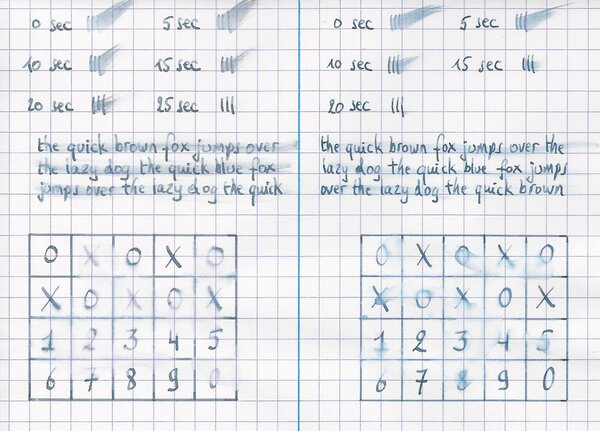 0 sec 5 sec
10 sec 15 sec
20 sec 25 sec
the quick brown fox jumps over
the lazy dog the quick blue fox
jumps over the lazy dog the quick
O X O X O
X O X O X
1 2 3 4 5
6 7 8 9 0
0 sec 5 sec
10 sec 15 sec
20 sec
the quick brown fox jumps over the
lazy dog the quick blue fox jumps
over the lazy dog the quick brown
O X O X O
X O X O X
1 2 3 4 5
6 7 8 9 0